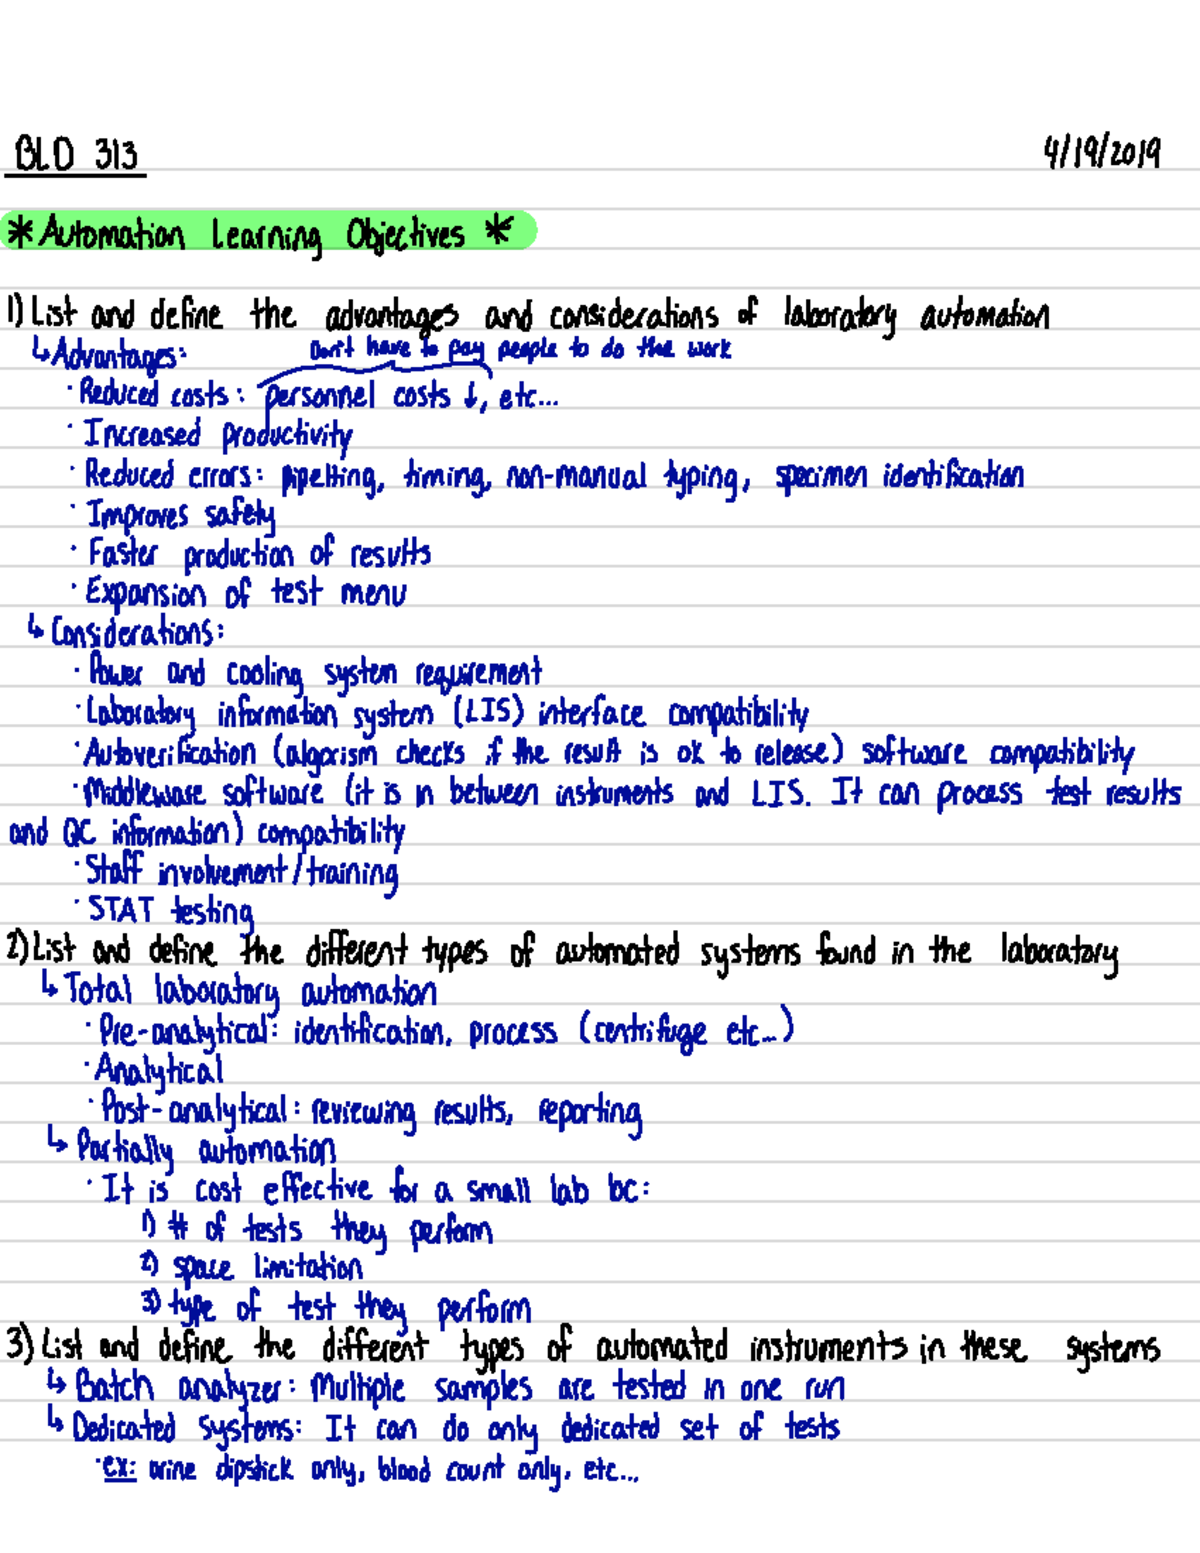 BLD 313 4/19/2019
*Automation Learning Objectives *
1) List and define the advantages and considerations of laboratory automation
↳Advantages: Don't have to pay people to do the work
· Reduced costs: personnel costs ↓, etc...
· Increased productivity
· Reduced errors: pipetting, timing, non-manual typing, specimen identification
· Improves safety
· Faster production of results
· Expansion of test menu
↳ Considerations:
· Power and cooling system requirement
· Laboratory information system (LIS) interface compatibility
· Autoverification (algorism checks if the result is ok to release) software compatibility
· Middleware software (it is in between instruments and LIS. It can process test results
and QC information) compatibility
· Staff involvement/training
· STAT testing
2) List and define the different types of automated systems found in the laboratory
↳ Total laboratory automation
· Pre-analytical: identification, process (centrifuge etc...)
· Analytical
· Post-analytical: reviewing results, reporting
↳ Partially automation
· It is cost effective for a small lab bc:
1) # of tests they perform
2) space limitation
3) type of test they perform
3) List and define the different types of automated instruments in these systems
↳ Batch analyzer: Multiple samples are tested in one run
↳ Dedicated systems: It can do only dedicated set of tests
· ex: urine dipstick only, blood count only, etc...